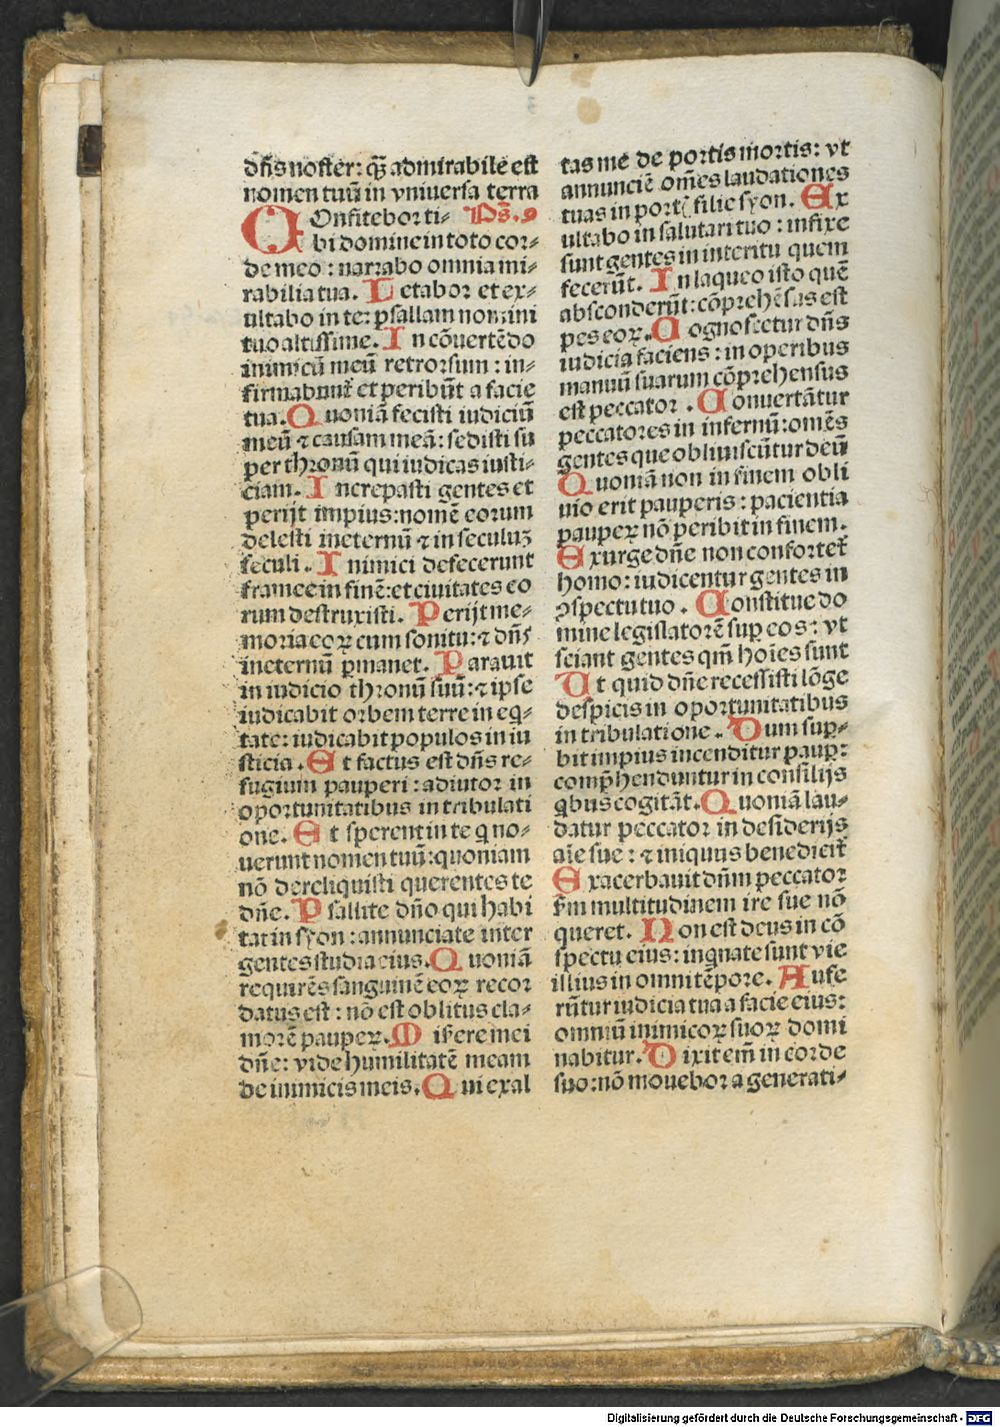 dn̄s noster: q̄ꝫ admirabile est
nomen tuū in vniuersa terra
COnfitebor ti- Ps̄.9
bi domine in toto cor-
de meo: narrabo omnia mi-
rabilia tua. Letabor et ex-
ultabo in te: psallam nomini
tuo altissime. In cōuertēdo
inimicū meū retrorsum: in-
firmabunt̄ et peribūt a facie
tua. Quoniā fecisti iudiciū
meū ⁊ causam meā: sedisti su
per thronū qui iudicas iusti-
ciam. Increpasti gentes et
perijt impius: nomē eorum
delesti in eternū ⁊ in seculuꝫ
seculi. Inimici defecerunt
framee in finē: et ciuitates eo
rum destruxisti. Perijt me-
moria eoꝝ cum sonitu: ⁊ dn̄s
in eternū ꝑmanet. Parauit
in iudicio thronū suū: ⁊ ipse
iudicabit orbem terre in eq̄-
tate: iudicabit populos in iu
sticia. Et factus est dn̄s re-
fugium pauperi: adiutor in
oportunitatibus in tribulati
one. Et sperent in te q no-
uerunt nomen tuū: quoniam
nō dereliquisti querentes te
dn̄e. Psallite dn̄o qui habi
tat in syon: annunciate inter
gentes studia eius. Quoniā
requirēs sanguinē eoꝝ recor
datus est: nō est oblitus cla-
morē pauperꝝ. Miserere mei
dn̄e: vide humilitatē meam
de inimicis meis. Qui exal
tas me de portis mortis: vt
annunciē om̄es laudationes
tuas in port̄ filie syon. Ex
ultabo in salutari tuo: infixe
sunt gentes in interitu quem
fecerūt. In laqueo isto quē
absconderūt: cōprehēsus est
pes eoꝝ. Cognoscetur dn̄s
iudicia faciens: in operibus
manuū suarum cōprehensus
est peccator. Conuertātur
peccatores in infernū: omēs
gentes que obliuiscūtur deū
Quoniā non in finem obli
uio erit pauperis: pacientia
pauperꝝ nō peribit in finem.
Exurge dn̄e non confortet̄
homo: iudicentur gentes in
ꝯspectu tuo. Constitue do
mine legislatorē suꝑ eos: vt
sciant gentes qm̄ hoīes sunt
Ut quid dn̄e recessisti lōge
despicis in oportunitatibus
in tribulatione. Dum suꝑ-
bit impius incenditur pauꝑ:
comp̄henduntur in consilijs
qbus cogitāt. Quoniā lau-
datur peccator in desiderijs
aīe sue: ⁊ iniquus benedicit̄
Exacerbauit dn̄m peccator
s̄m multitudinem ire sue nō
queret. Non est deus in cō
spectu eius: inqnate sunt vie
illius in omni tēpore. Aufe
rūtur iudicia tua a facie eius:
omniū inimicoꝝ suoꝝ domi
nabitur. Dixit em̄ in corde
suo: nō mouebor a generati-
Digitalisierung gefördert durch die Deutsche Forschungsgemeinschaft - DFG